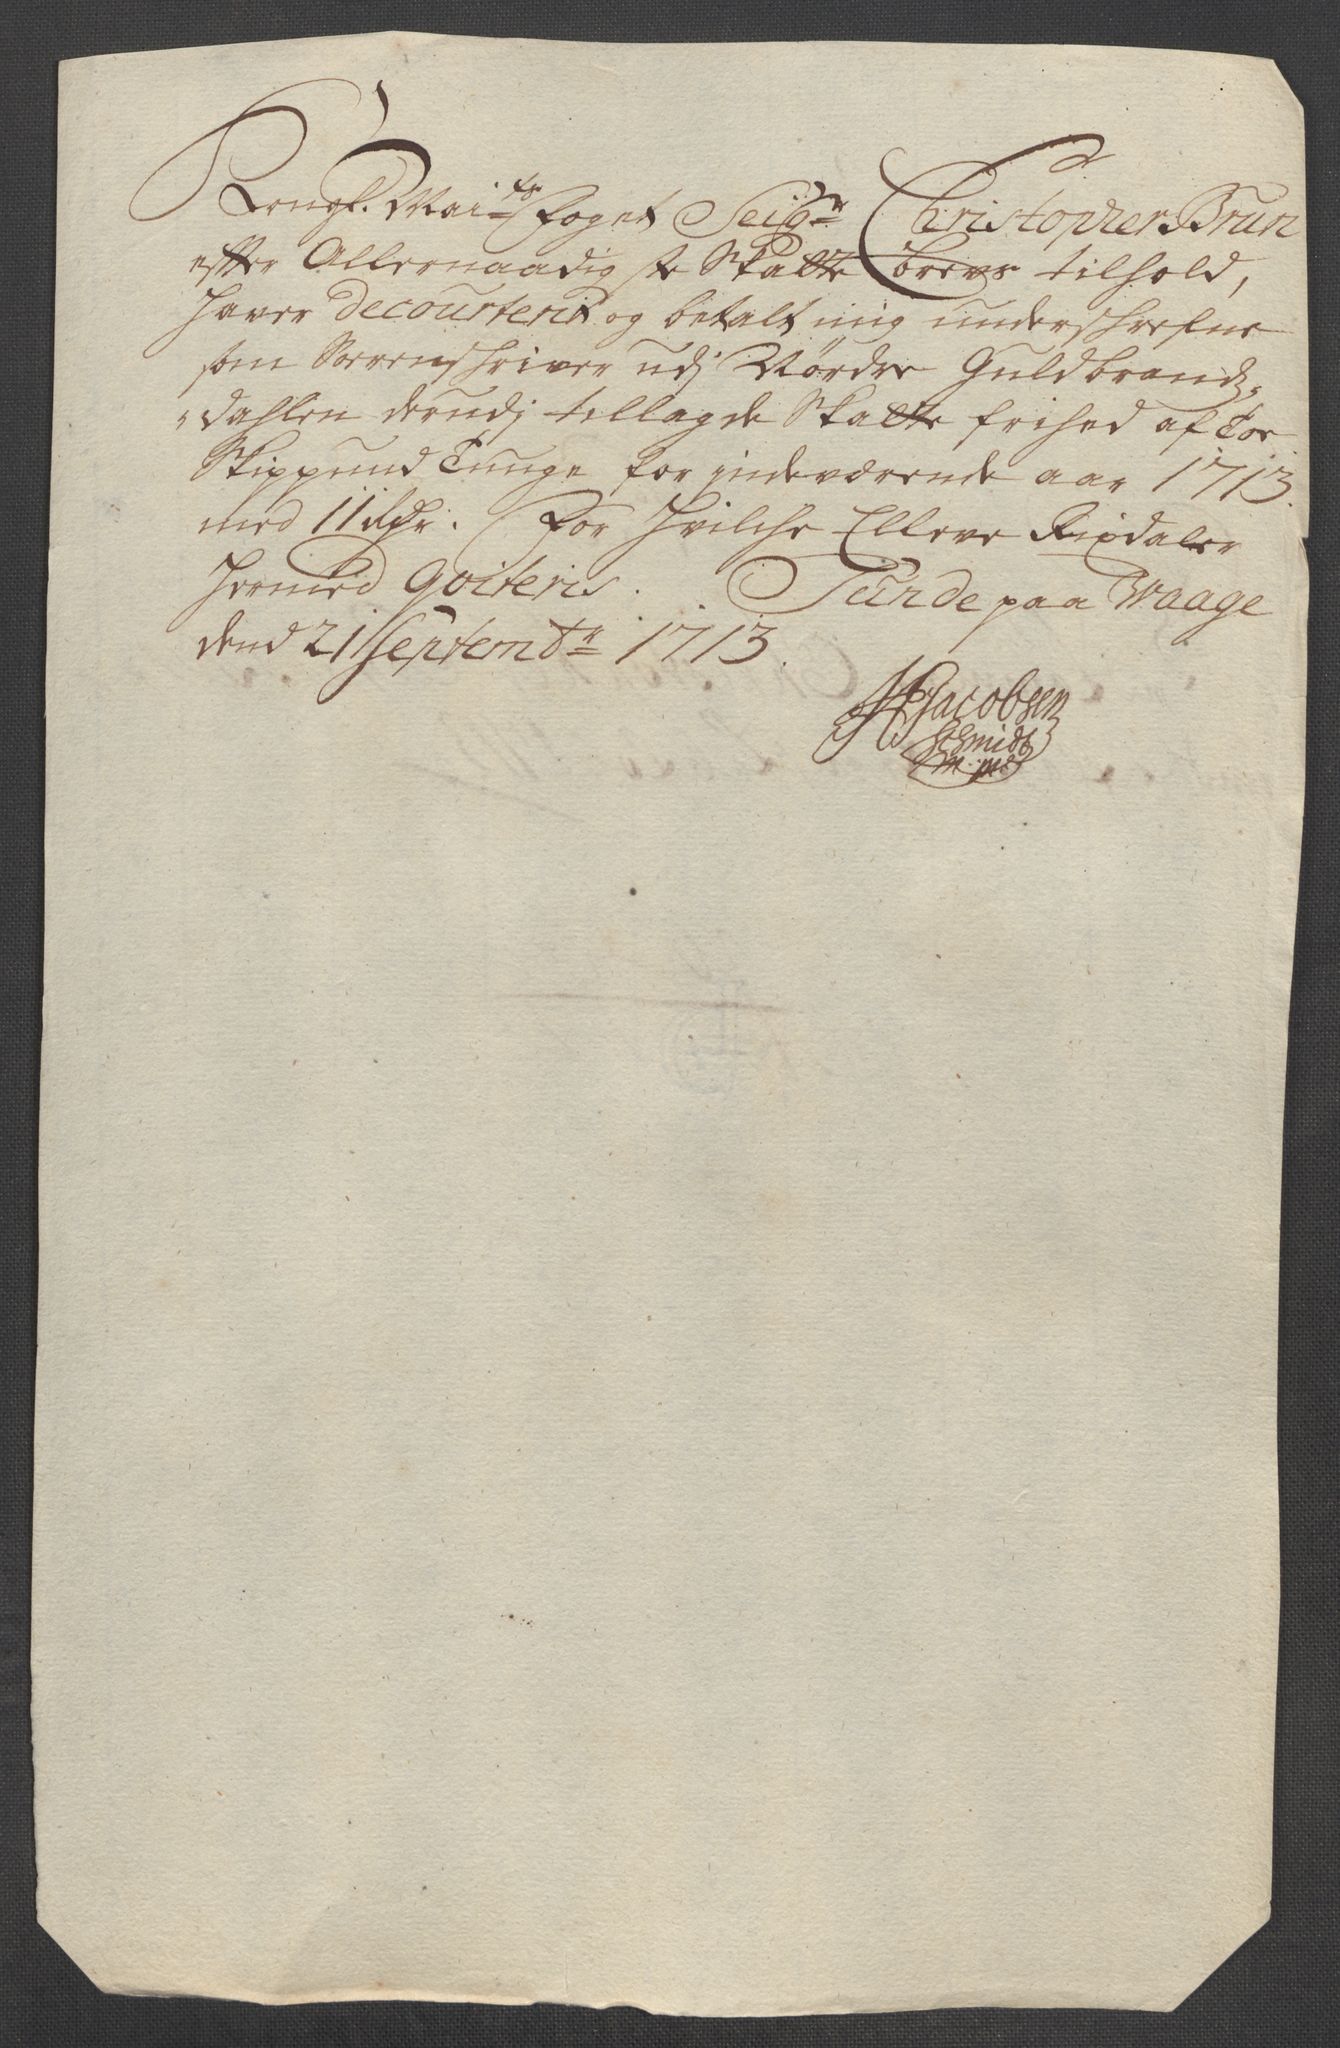 Kongl. Maits foget Seigr Christopher Brun
efter Allernaadigste Skatte brevs tilhold,
haver decourterit og betalt mig underschrefne
som Sorrenschriver udj Nørdre Guldbrands-
dahlen derudj tillagde Skatte frihed af toe
Skippund Tunge for indeværende aar 1713.
med 11 Rdr. for hvilche Elleve Rixdaler
hermed qviteris. Sunde paa Waage
dend 21 Septembr 1713.
Jacobsen
Schmidt
m. p.